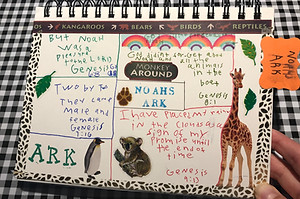 KANGAROOS BEARS BIRDS REPTILES
But Noah
Was a
pleasure to
the Lord
Genesis
God
about
all the
animals
in the
boat
Genesis
8:1
MONKEY
AROUND
NOAHS
ARK
Two by Two
They came
male and
female
Genesis
7:16
I have placed my rain
in the clouds as a
sign of my
Promise until
the end of
time
Genesis
9:13
ARK
NOAH'S
ARK